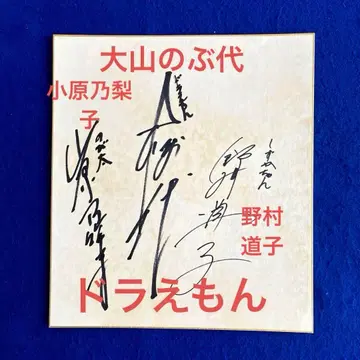 大山のぶ代
小原乃梨
子
ドラえもん
大山のぶ代
のび太
小原乃梨子
しずかちゃん
野村道子
野村
道子
ドラえもん